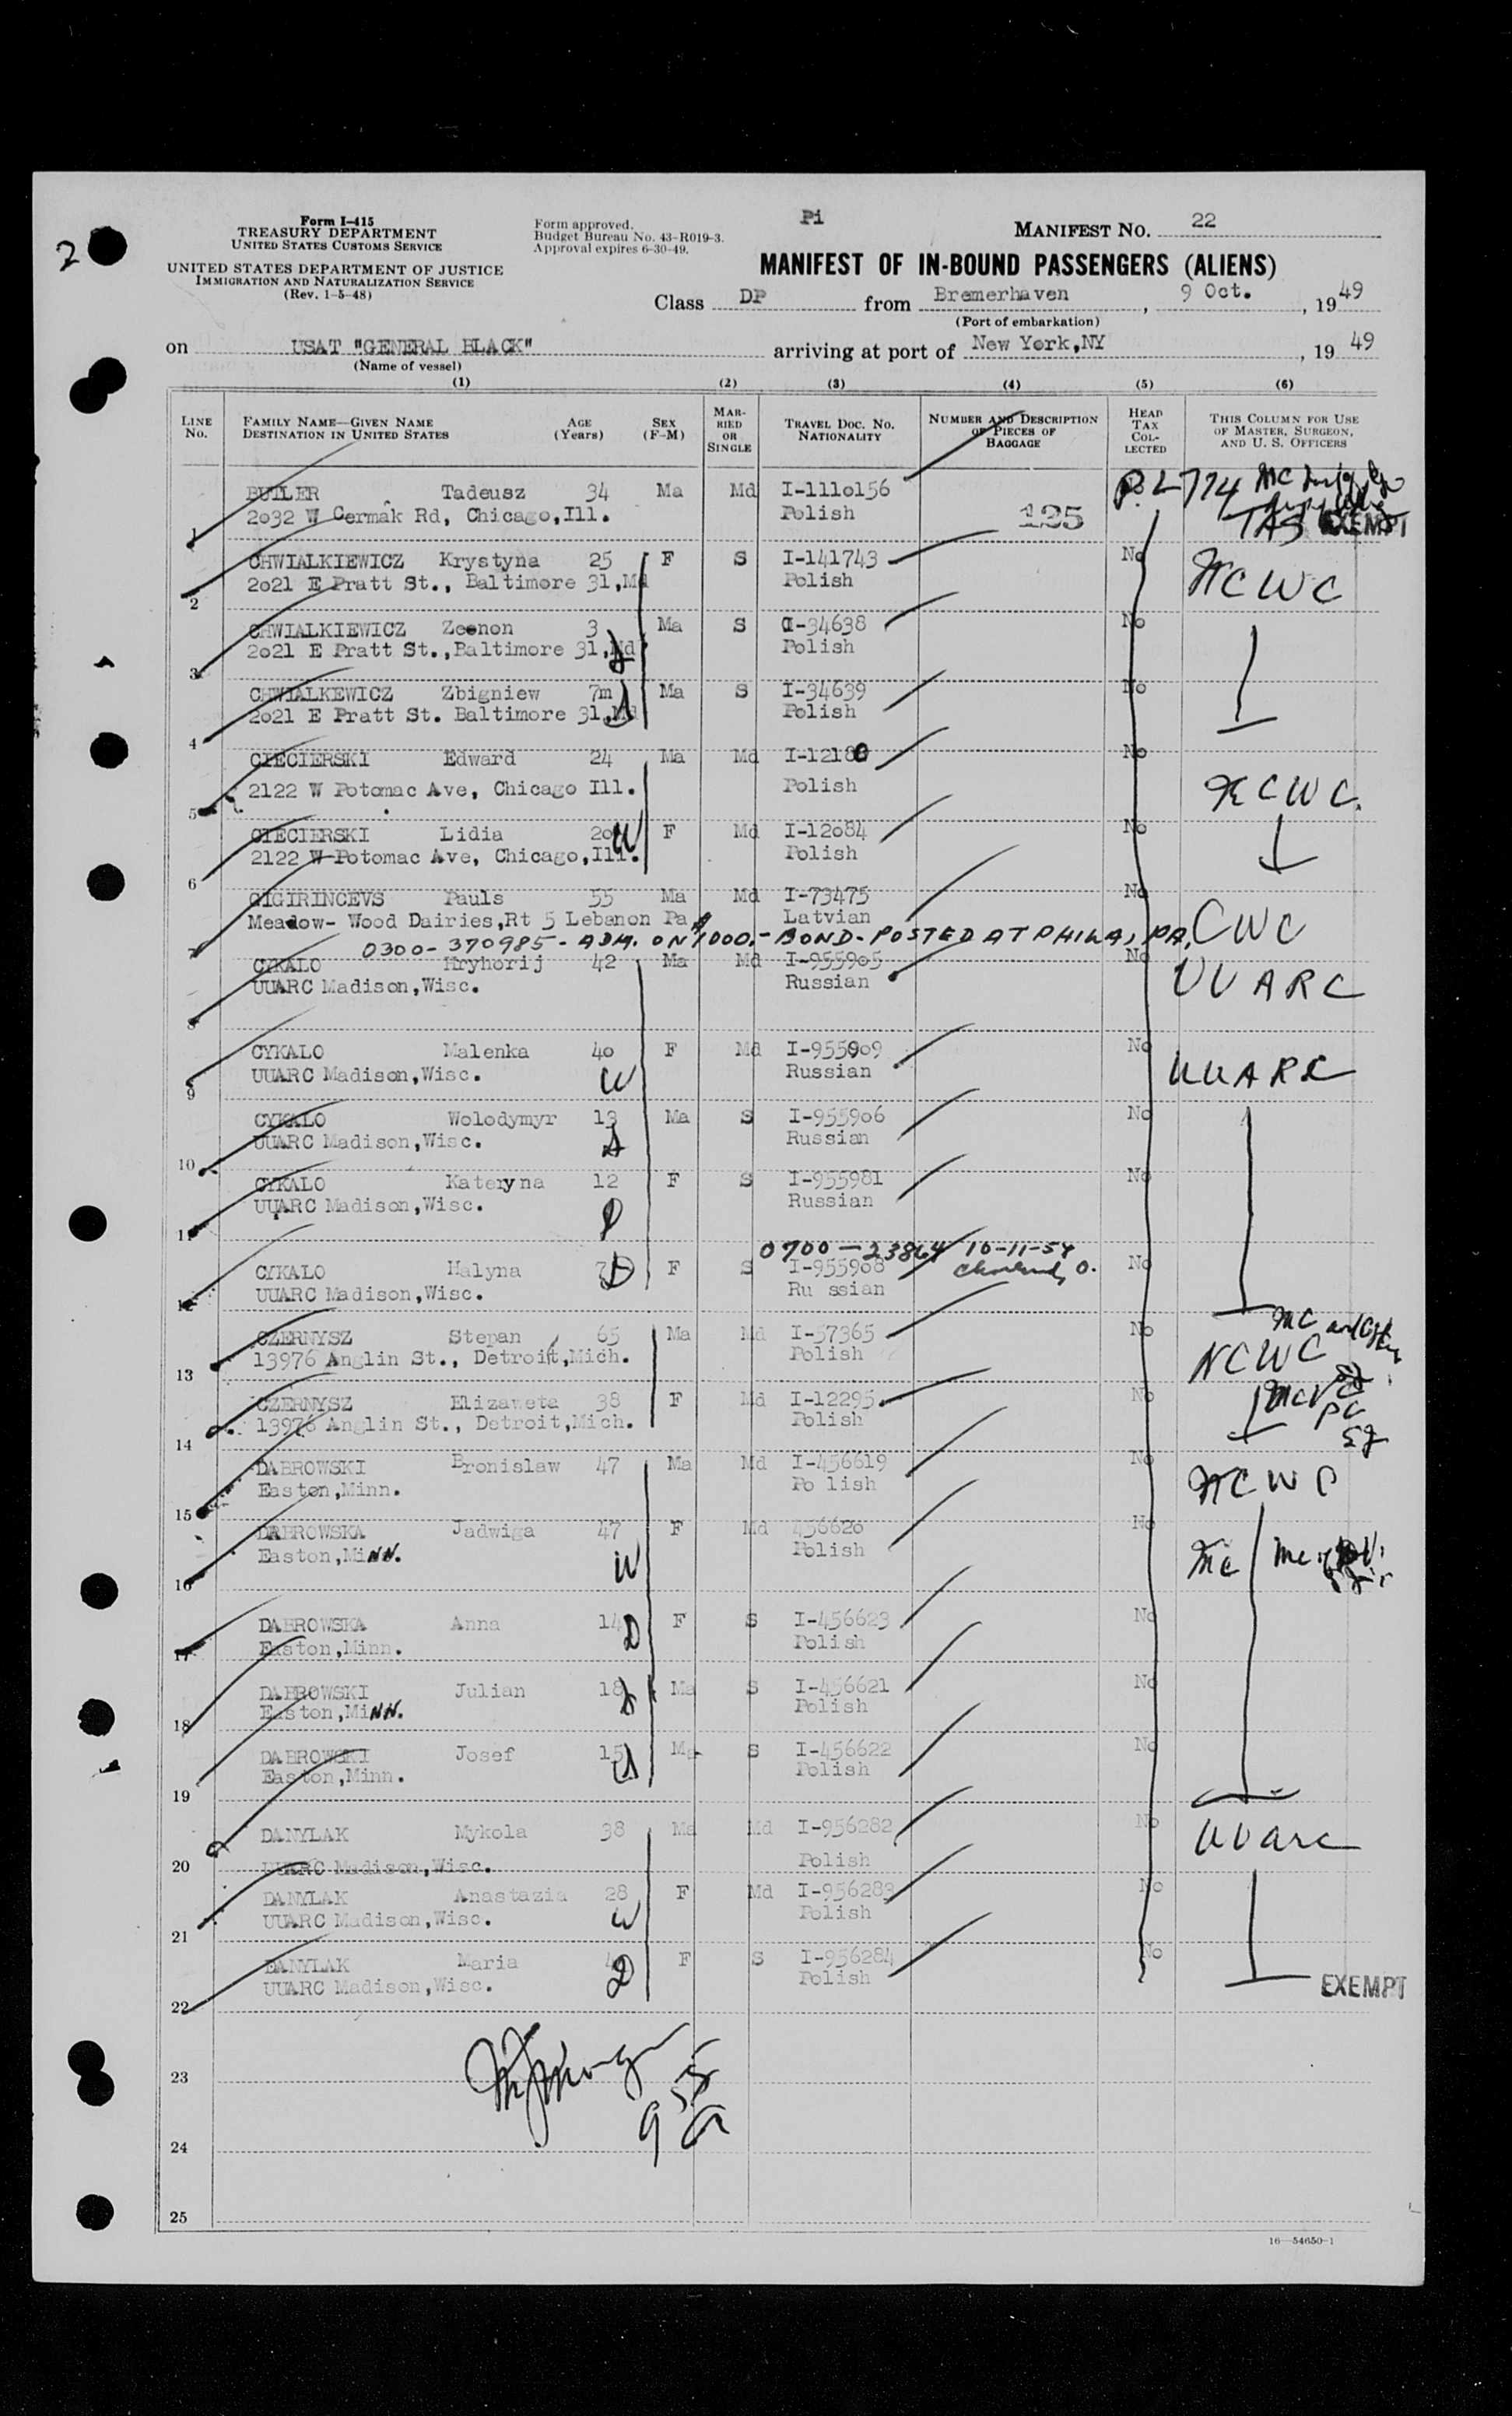 2
Form I-415
TREASURY DEPARTMENT
UNITED STATES CUSTOMS SERVICE
UNITED STATES DEPARTMENT OF JUSTICE
IMMIGRATION AND NATURALIZATION SERVICE
(Rev. 1-5-48)
Form approved.
Budget Bureau No. 43-R019-3.
Approval expires 6-30-49.
Pi
MANIFEST NO. 22
MANIFEST OF IN-BOUND PASSENGERS (ALIENS)
Class DP from Bremerhaven, 9 Oct., 1949
(Port of embarkation)
on USAT "GENERAL BLACK" arriving at port of New York,NY, 19 49
(Name of vessel)
(1) (2) (3) (4) (5) (6)
LINE No. FAMILY NAME—GIVEN NAME DESTINATION IN UNITED STATES AGE (Years) SEX (F-M) MARRIED OR SINGLE TRAVEL DOC. NO. NATIONALITY NUMBER AND DESCRIPTION OF PIECES OF BAGGAGE HEAD TAX COLLECTED THIS COLUMN FOR USE OF MASTER, SURGEON, AND U. S. OFFICERS
BUTLER Tadeusz 34 Ma Md I-1110156 P.L 774
1 2032 W Cermak Rd, Chicago,Ill. Polish 125 EXEMPT
CHWIALKIEWICZ Krystyna 25 F S I-141743 No NCWC
2 2021 E Pratt St., Baltimore 31,Md Polish
CHWIALKIEWICZ Zeenon 3 Ma S I-34638 No
3 2021 E Pratt St.,Baltimore 31,Md Polish
CHWIALKEWICZ Zbigniew 7m Ma S I-34639 No
4 2021 E Pratt St. Baltimore 31,Md Polish
CIECIERSKI Edward 24 Ma Md I-12180 No
5 2122 W Potomac Ave, Chicago Ill. Polish NCWC.
CIECIERSKI Lidia 20 W F Md I-12084 No
6 2122 W Potomac Ave, Chicago,Ill. Polish
CIGIRINCEVS Pauls 55 Ma Md I-73475 No
Meadow- Wood Dairies,Rt 5 Lebanon Pa Latvian CWC
7 0300-370985-ADM. ON 1000.- BOND-POSTED AT PHILA, PA.
CYKALO Hryhorij 42 Ma Md I-955905 No
8 UUARC Madison,Wisc. Russian UUARC
CYKALO Malenka 40 F Md I-955909 No
9 UUARC Madison,Wisc. W Russian UUARC
CYKALO Wolodymyr 13 Ma S I-955906 No
10 UUARC Madison,Wisc. Russian
CYKALO Kateryna 12 F S I-955981 No
11 UUARC Madison,Wisc. D Russian
0700-23864 10-11-54
CYKALO Halyna F S I-955908 No
12 UUARC Madison,Wisc. Ru ssian
CZERNYSZ Stepan 65 Ma Md I-57365 No
13 13976 Anglin St., Detroit,Mich. Polish NCWC
CZERNYSZ Elizaweta 38 F Md I-12295 No
14 13976 Anglin St., Detroit,Mich. Polish
DABROWSKI Bronislaw 47 Ma Md I-456619 No
15 Easton,Minn. Po lish NCWC
DABROWSKA Jadwiga 47 F Md 456620 No
16 Easton,MiNN. W Polish
DABROWSKA Anna 14 D F S I-456623 No
17 Easton,Minn. Polish
DABROWSKI Julian 18 Ma S I-456621 No
18 Easton,MiNN. Polish
DABROWSKI Josef 15 Ma S I-456622 No
19 Easton,Minn. Polish
DANYLAK Mykola 38 Ma Md I-956282 No UUarc
20 UUARC Madison,Wisc. Polish
DANYLAK Anastazia 28 F Md I-956283 No
21 UUARC Madison,Wisc. W Polish
DANYLAK Maria F S I-956284 No
22 UUARC Madison,Wisc. D Polish EXEMPT
23
24
25
16—54650-1